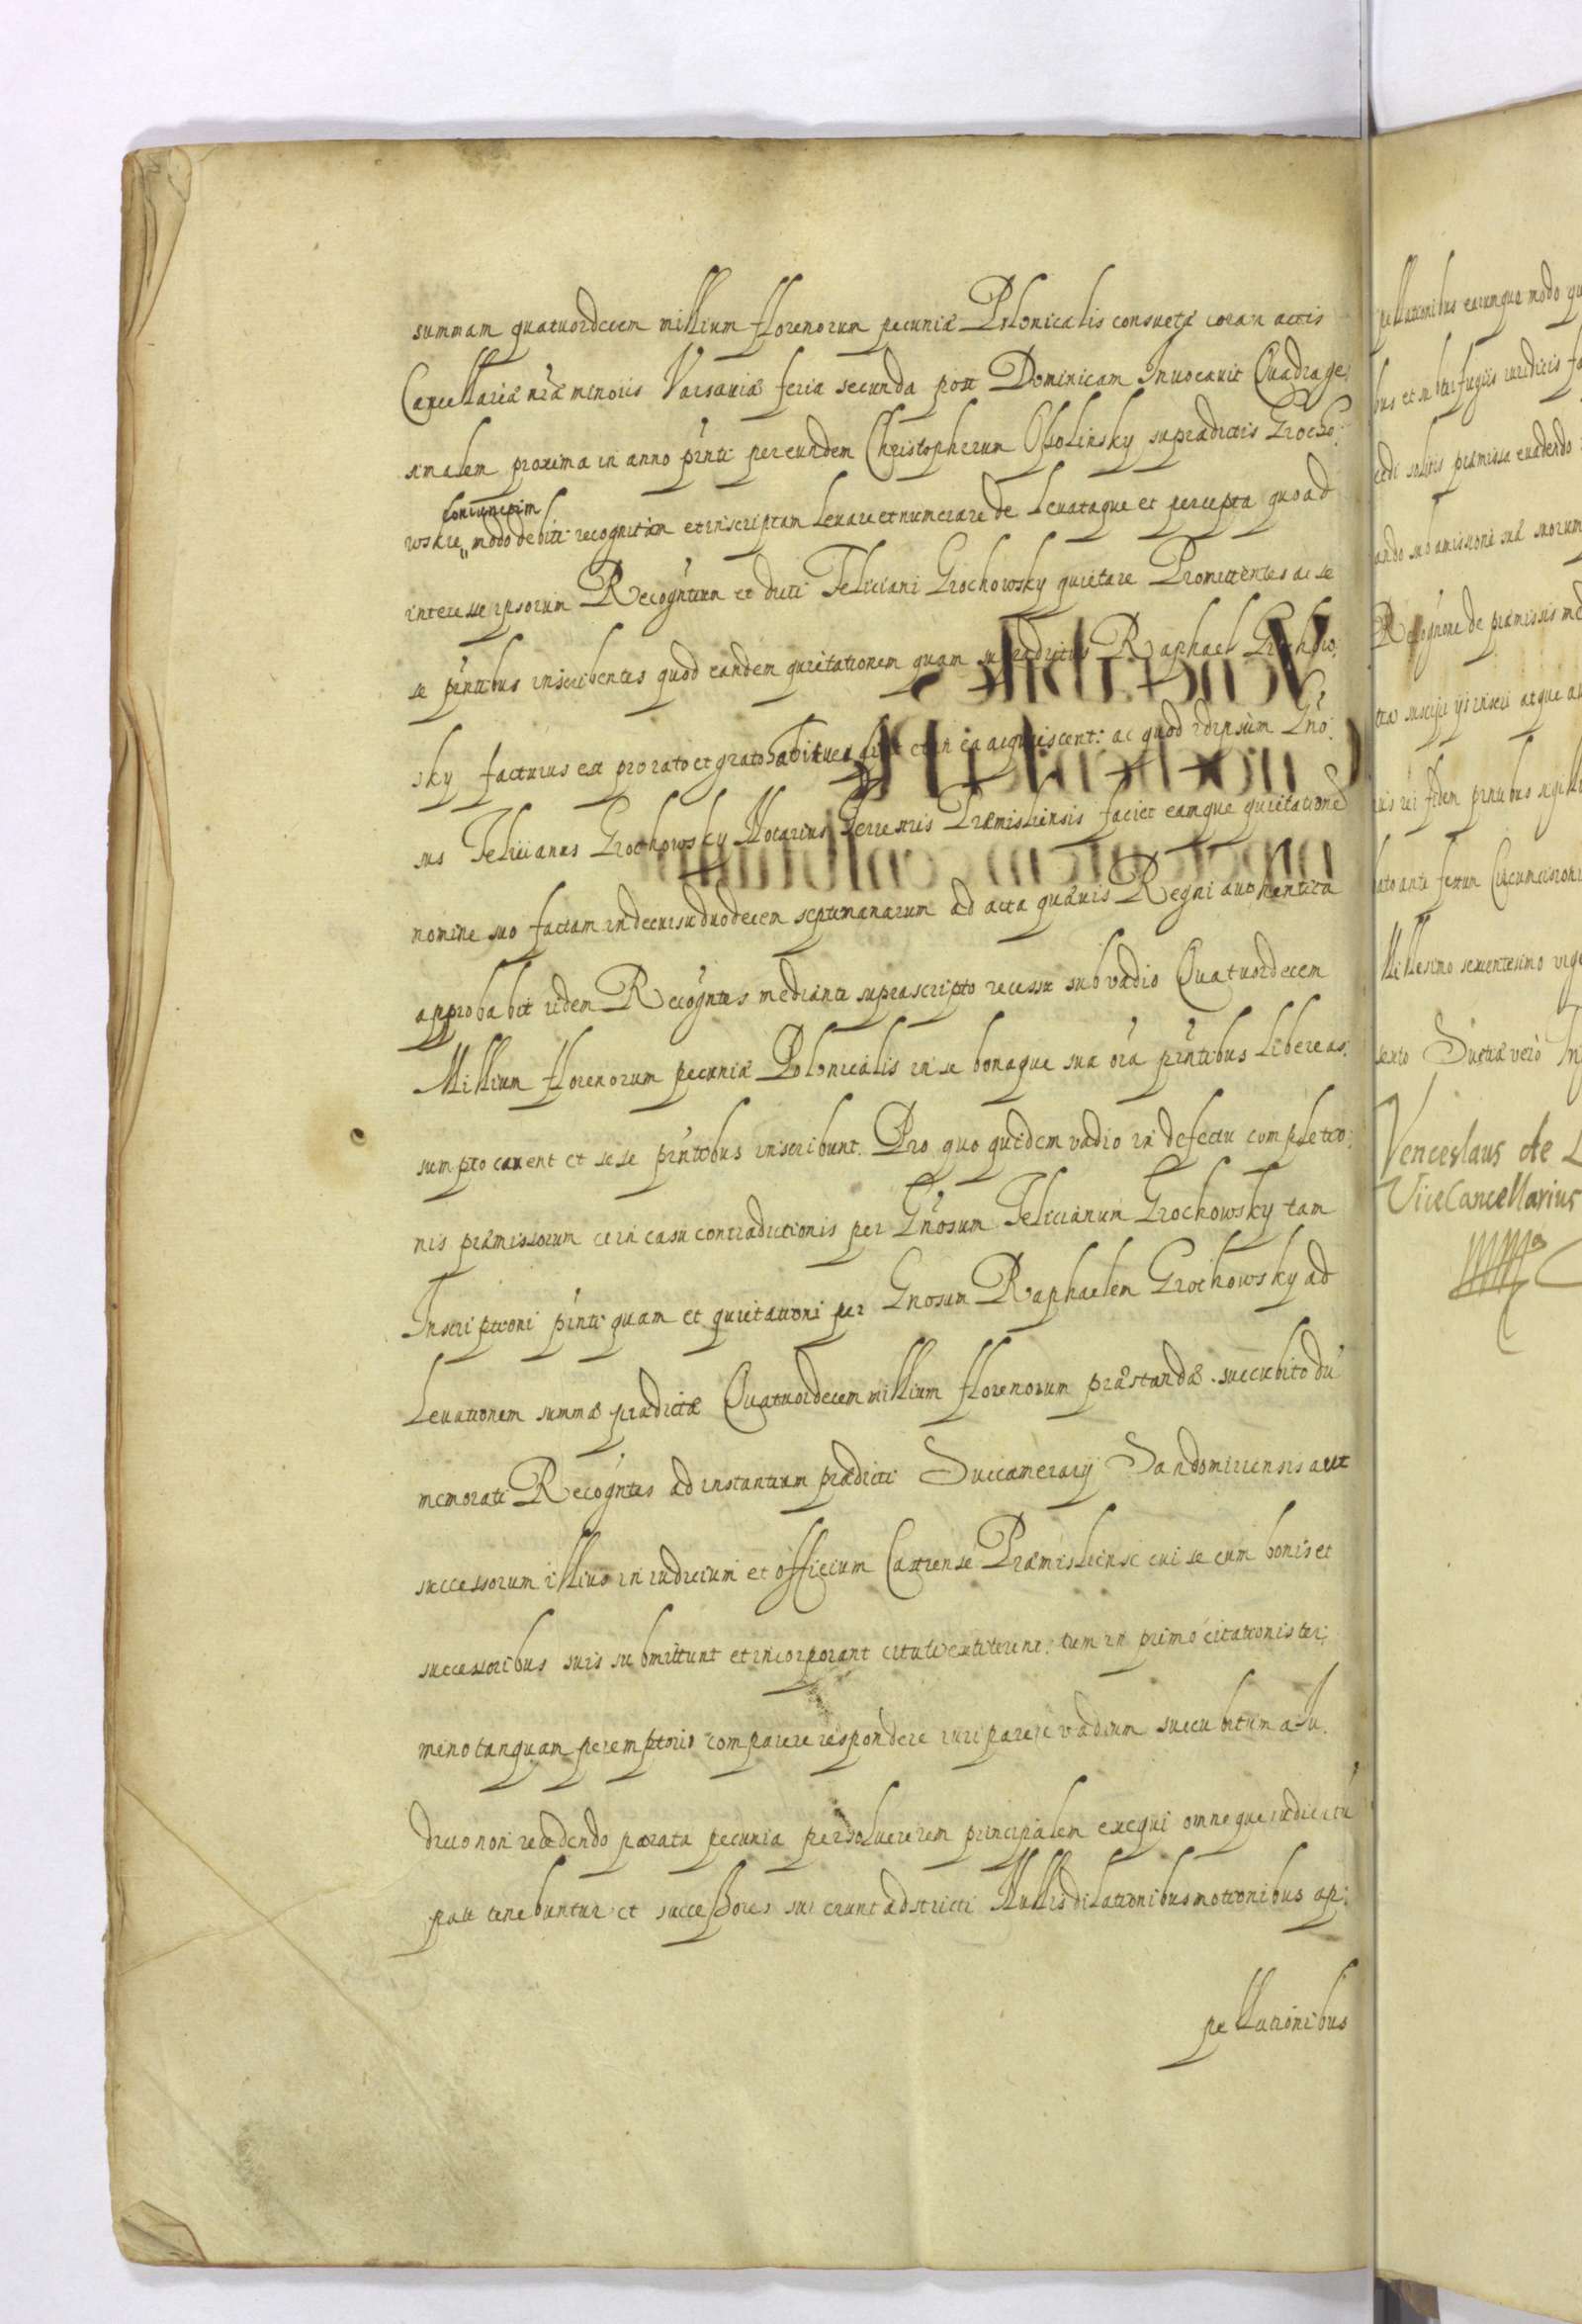 summam quatuordecem millium florenorum pecuniæ Polonicalis consuetæ coram actis
Cancellariæ nrǽ minoris Varsauiæ feria secunda post Dominicam Inuocauit Quadrage:
simalem proxima in anno pn̄ti per eundem Christopherum Ossolinsky supradictis Grocho:
coniunctim
wskie modo debiti recognitam et inscriptam leuare et numerare de leuataque et percepta quoad
interesse ipsorum Recogn̄tium et dicti Feliciani Grochowsky quietare Promittentes ac se
se pn̄tibus inscribentes quod eandem quietationem quam supradictus Raphael Grochow:
sky facturus est pro rato et grato et in ea acquiescent: ac quod idipsum Gn̄o:
sus Felicianus Grochowsky Notarius Terrestris Præmisliensis faciet eamque quietationē
nomine suo factam in decursu duodecem septimanarum ad acta quævis Regni authentica
approbabit iidem Recogn̄tes mediante suprascripto recessu sub vadio Quatuordecem
Millium florenorum pecuniæ Polonicalis in se bonaque sua oīa pn̄tibus libere as:
sumpto cauent et sese pn̄tibus inscribunt. Pro quo quidem vadio in defectu completio:
nis præmissorum et in casu contradictionis per Gn̄osum Felicianum Grochowsky tam
Inscriptioni pn̄ti quam et quietationi per Gnosum Raphaelem Grochowsky ad
Leuationem summæ prædictæ Quatuordecem millium florenorum præstandæ succubito dū
memorati Recogn̄tes ad instantiam prædicti Succamerarij Sandomiriensis aut
successorum illius in iudicium et officium Castrense Præmisliense cui se cum bonis et
successoribus suis submittunt et incorporant citati extiterint: tum in primo citationis ter:
mino tanquam peremptorio comparere respondere iuri parere vadium succubitum a Iu:
dicio non recedendo parata pecunia persoluere rem principalem exequi omneque iudicatū
pati tenebuntur et successores sui erunt adstricti Nullis dilationibus motionibus ap:
pellationibus
pellationibus earumque modo
bus et subterfugiis iuridicis
solitis præmissa euadendo
ando sub amissione suæ
Recogn̄one de præmissis
suscipi ijs inseri atque
rei fidem pn̄tibus
ante festum Circumcisionis
Millesimo sexcentesimo
sexto Sueciæ verò
Venceslaus de L
ViceCancellarius